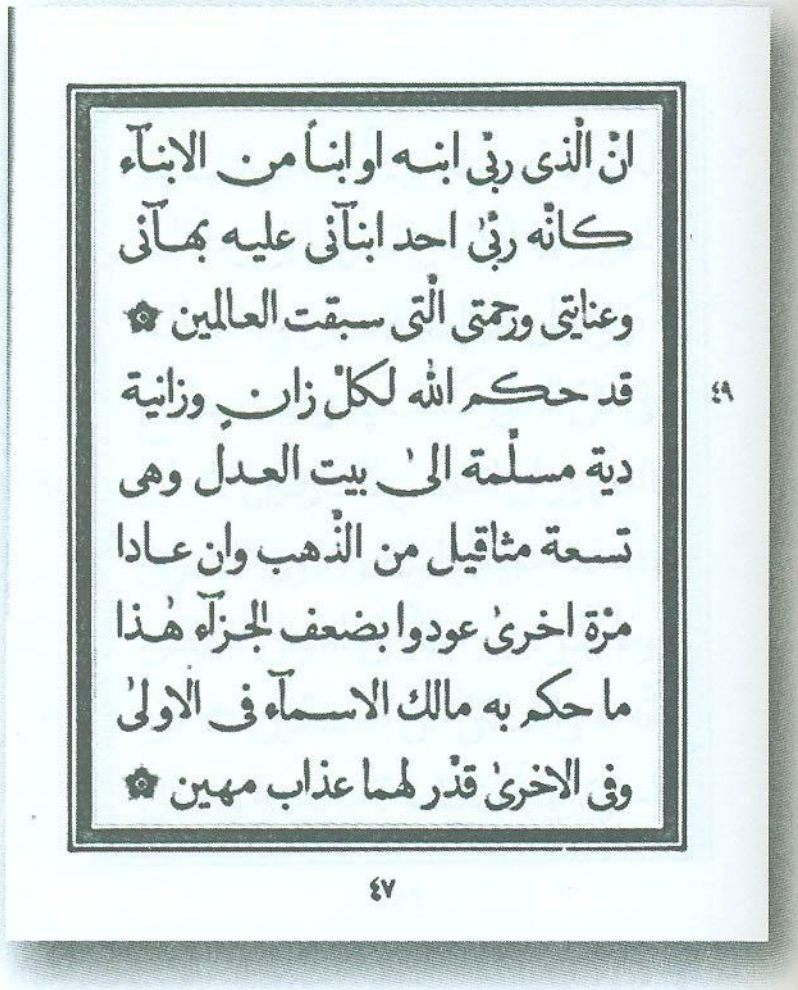 انّ الّذی ربّی ابنـه او ابنـاً من الابنـآء
کانّه ربّیٰ احد ابنآئی علیـه بهـآئی
وعنایتی ورحمتی الّتی سبقت العالمین ۞
قد حکم الله لکلّ زانٍ وزانیة
٤٩
دیة مسلّمة الیٰ بیت العـدل وهی
تسـعة مثاقیل من الذّهب وان عـادا
مرّة اخریٰ عودوا بضعف الجـزآء هٰـذا
ما حکم به مالك الاسـمآء فی الاولیٰ
وفی الاخریٰ قدّر لهما عذاب مهین ۞
٤٧